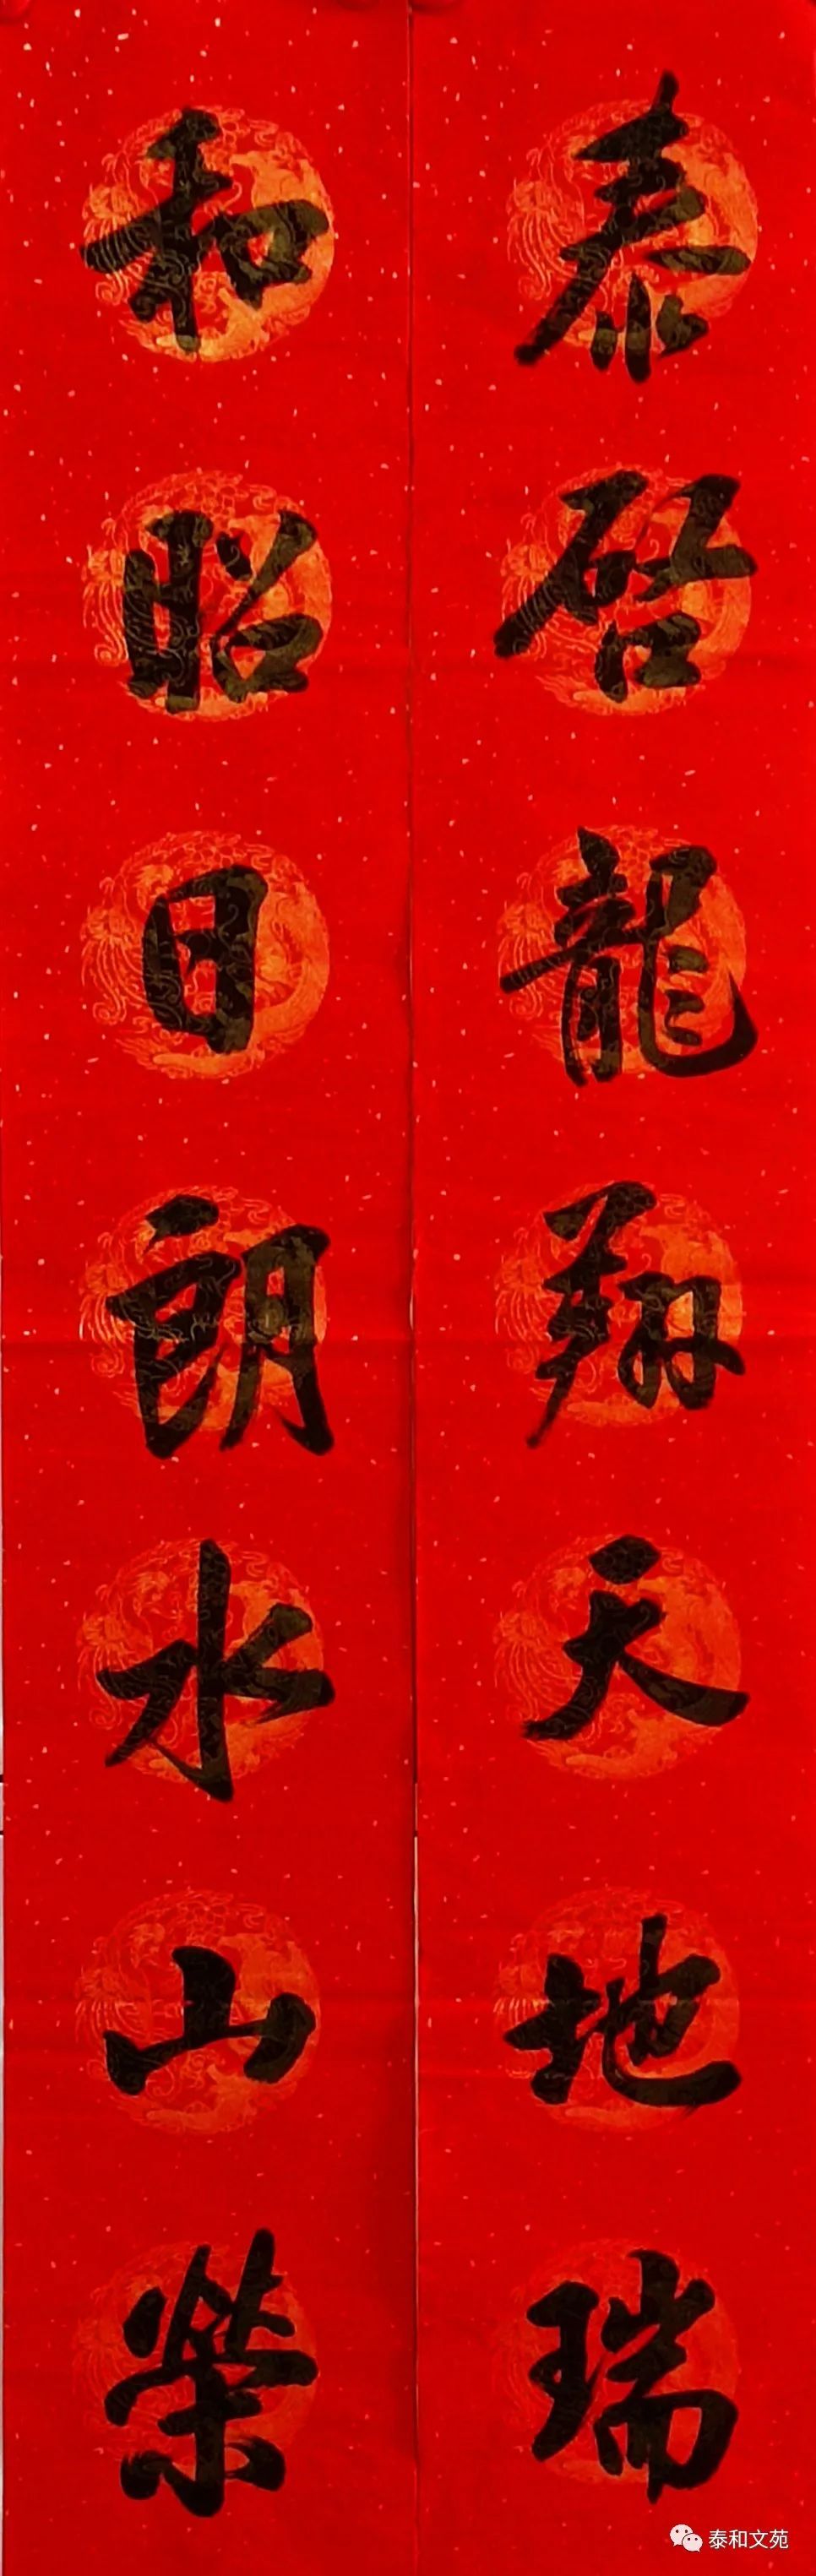 泰启龍翔天地瑞
和昭日朗水山榮
泰和文苑